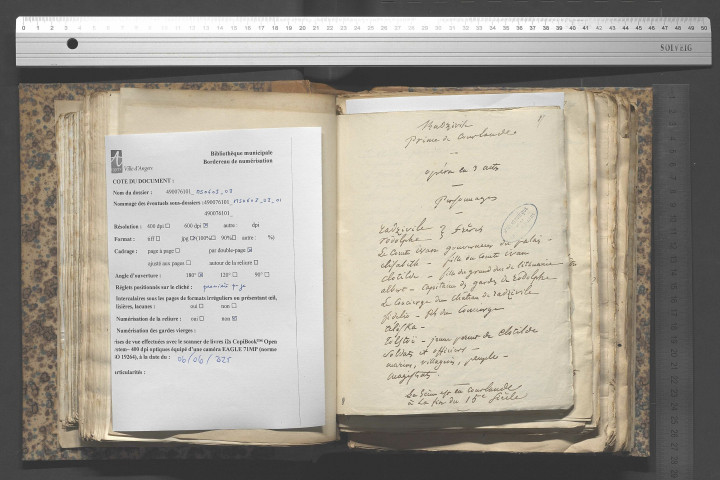 0 1 2 3 4 5 6 7 8 9 10 11 12 13 14 15 16 17 18 19 20 21 22 23 24 25 26 27 28 29 30 31 32 33 34 35 36 37 38 39 40 41 42 43 44 45 46 47 48 49 50
SOLVEIG
Bibliothèque municipale
Bordereau de numérisation
Ville d'Angers
COTE DU DOCUMENT :
Nom du dossier : 490076101_ms0608_02
Nommage des éventuels sous-dossiers : 490076101_ms0608_02_01
490076101_
Résolution : 400 dpi ☐ 600 dpi ☒ autre : dpi
Format : tiff ☐ jpg ☒ (100% ☐ 90% ☐ autre : %)
Cadrage : page à page ☐ par double-page ☒
ajusté aux pages ☐ autour de la reliure ☐
Angle d'ouverture : 180° ☒ 120° ☐ 90° ☐
Réglet positionnés sur le cliché :
Intercalaires sous les pages de formats irréguliers ou présentant
oui ☐ non ☐
Numérisation de la reliure : oui ☐ non ☒
Numérisation des gardes vierges :
rises de vue effectuées avec le scanner de livres i2s CopiBook™ Open
400 dpi optiques équipé d'une caméra EAGLE 71MP (norme
O 19264), à la date du : 06/06/2025
articularités :
Radzivile
Prince de Courlande
opéra en 3 actes
Personnages
Radzivile } frères
rodolphe
le comte ivan gouverneur du palais -
elisabeth - fille du comte ivan
Clotilde - fille du grand duc de lithuanie -
albert - capitaine des gardes de Rodolphe
le concierge du château de radzivile
fidelio - fils du concierge
- jeune parent de Clotilde
soldats et officiers -
villageois, peuple -
magistrats
La Scène est en courlande
à la fin du 15me siècle